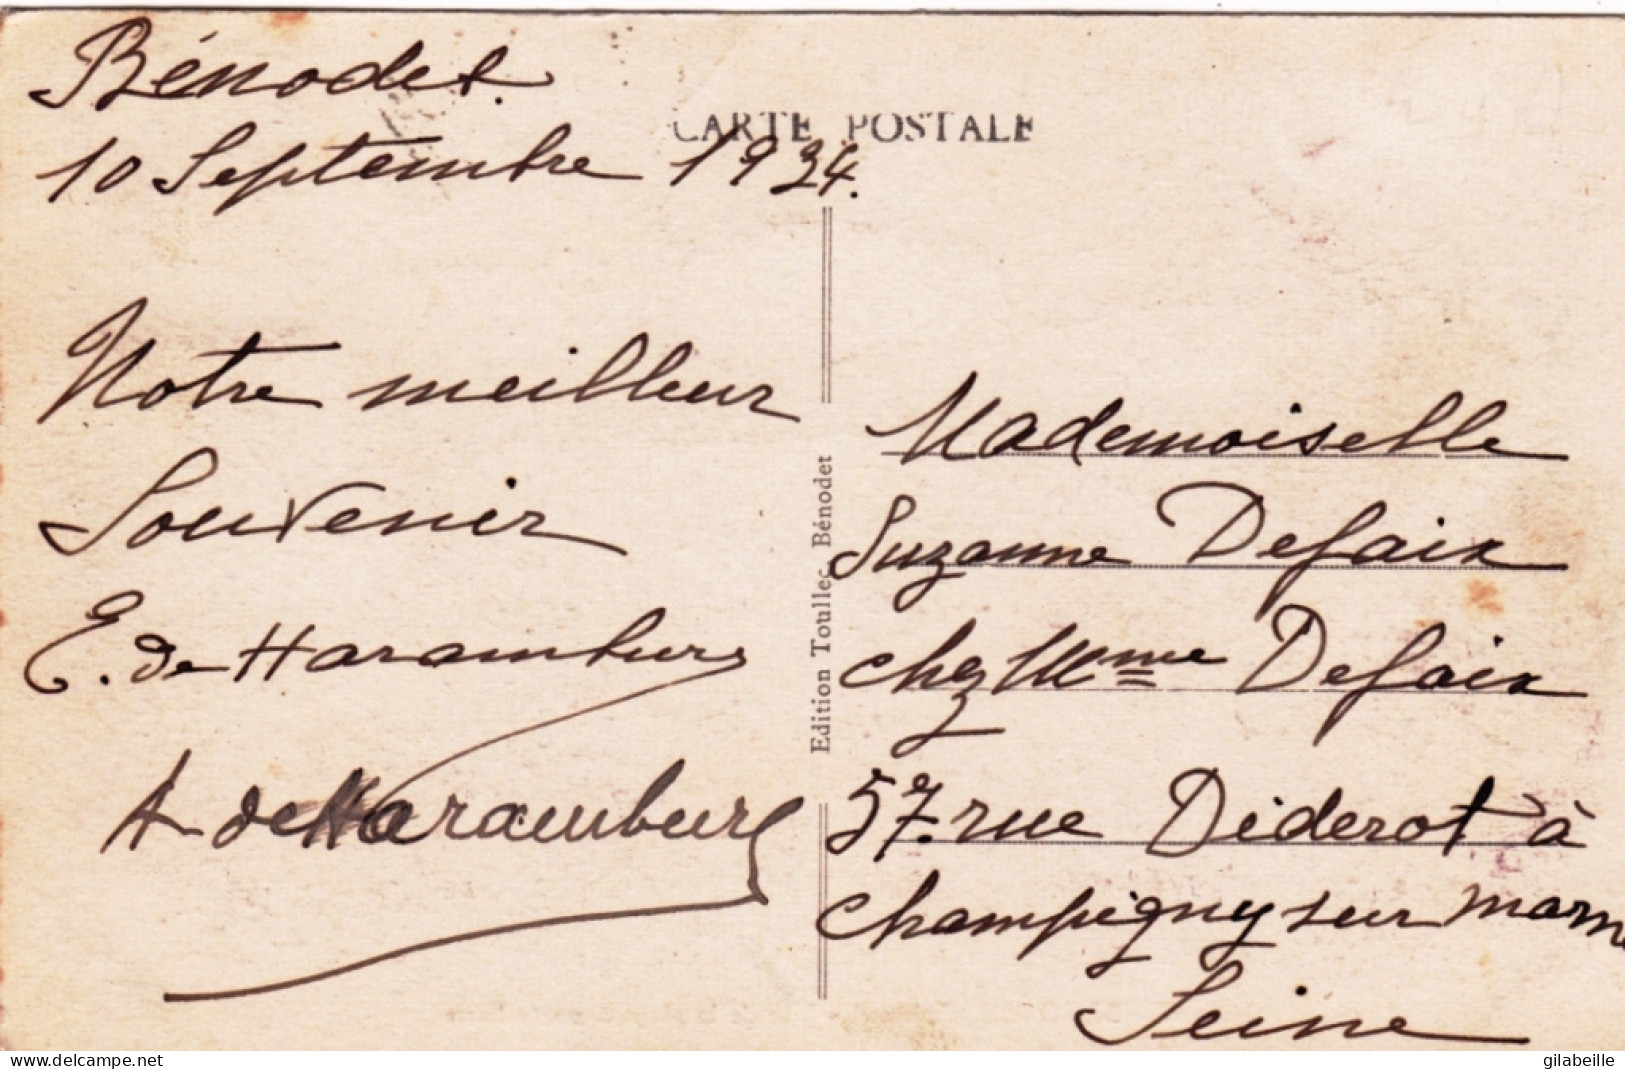 Bénodet.
10 Septembre 1934.
CARTE POSTALE
Notre meilleur
Souvenir
E. de Haramburg
A de Haramburg
Edition Toullec, Bénodet
Mademoiselle
Suzanne Defaix
chez Mme Defaix
57. rue Diderot à
Champigny sur Marne
Seine
www.delcampe.net
gilabeille